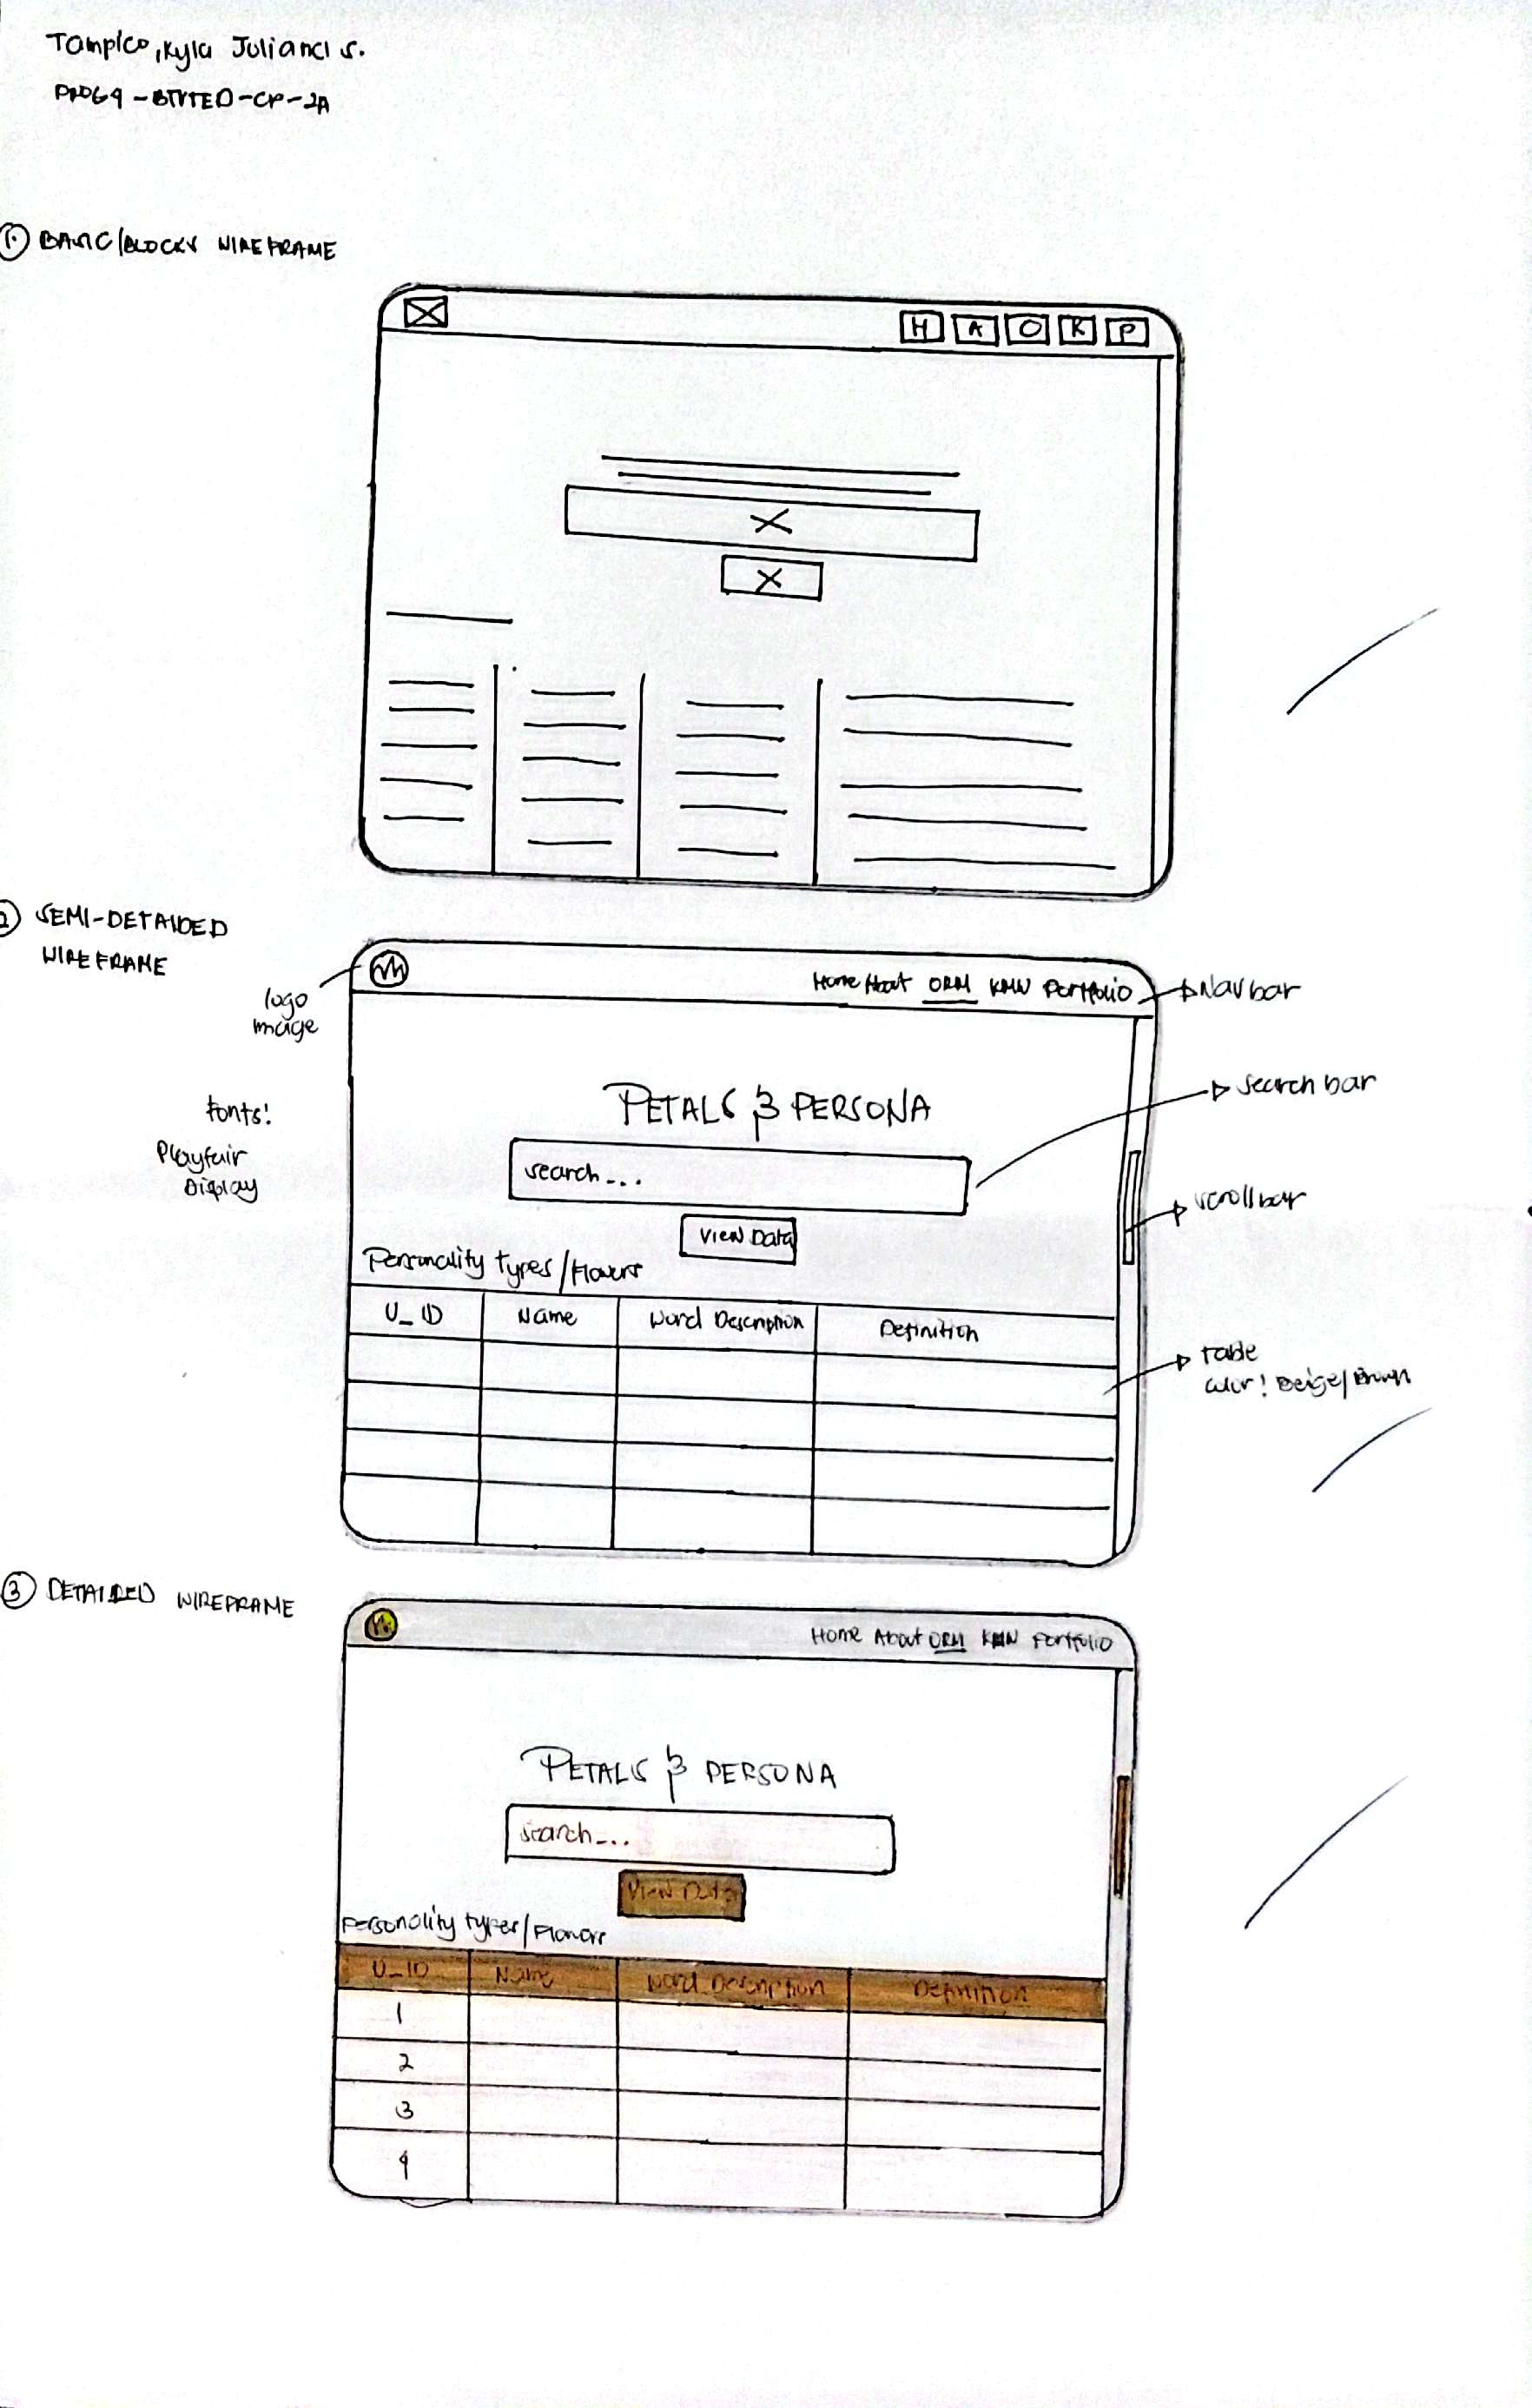 Tampico, Kyla Juliana S.
PROG4-BTVTED-CP-2A
1. BASIC/BLOCKY WIREFRAME
H A O K P
2 SEMI-DETAILED
WIREFRAME
logo
image
Home About ORM KMW Portfolio
Navbar
fonts:
Playfair
Display
PETALS & PERSONA
search bar
search...
View Data
scrollbar
Personality types/Flowers
U_ID Name Word Description Definition
table
color: Beige/Brown
3 DETAILED WIREFRAME
Home About ORM KMW Portfolio
PETALS & PERSONA
search...
View Data
Personality types/Flowers
U_ID Name Word Description Definition
1
2
3
4